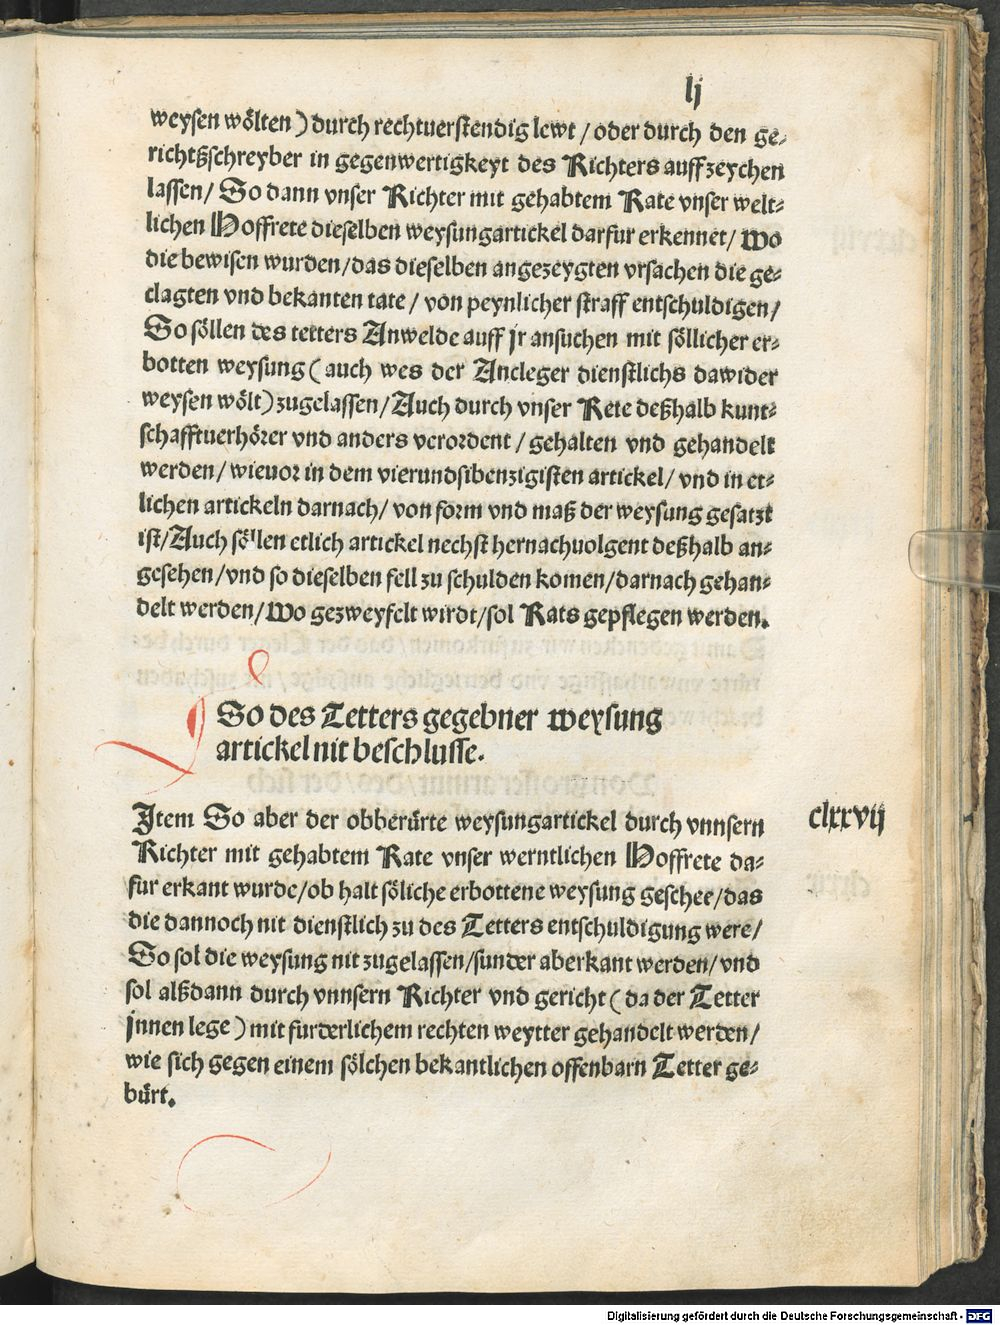 lj
weysen wölten) durch rechtuerstendig lewt / oder durch den ge⸗
richtßschreyber in gegenwertigkeyt des Richters auffzeychen
lassen / So dann vnser Richter mit gehabtem Rate vnser welt⸗
lichen Hoffrete dieselben weysungartickel darfur erkennet / Wo
die bewisen wurden / das dieselben angezeygten vrsachen die ge⸗
clagten vnd bekanten tate / von peynlicher straff entschuldigen /
So söllen des tetters Anwelde auff jr ansuchen mit söllicher er⸗
botten weysung (auch wes der Ancleger dienstlichs dawider
weysen wölt) zugelassen / Auch durch vnser Rete deßhalb kunt⸗
schafftuerhörer vnd anders verordent / gehalten vnd gehandelt
werden / wieuor in dem vierundsibenzigisten artickel / vnd in et⸗
lichen artickeln darnach / von form vnd maß der weysung gesatzt
ist / Auch söllen etlich artickel nechst hernachuolgent deßhalb an⸗
gesehen / vnd so dieselben fell zu schulden komen / darnach gehan⸗
delt werden / Wo gezweyfelt wirdt / sol Rats gepflegen werden.
So des Tetters gegebner weysung
artickel nit beschlusse.
clxxvij
Item So aber der obberürte weysungartickel durch vnnsern
Richter mit gehabtem Rate vnser werntlichen Hoffrete da⸗
fur erkant wurde / ob halt söliche erbottene weysung geschee / das
die dannoch nit dienstlich zu des Tetters entschuldigung were /
So sol die weysung nit zugelassen / sunder aberkant werden / vnd
sol alßdann durch vnnsern Richter vnd gericht (da der Tetter
jnnen lege) mit furderlichem rechten weytter gehandelt werden /
wie sich gegen einem sölchen bekantlichen offenbarn Tetter ge⸗
bürt.
Digitalisierung gefördert durch die Deutsche Forschungsgemeinschaft - DFG